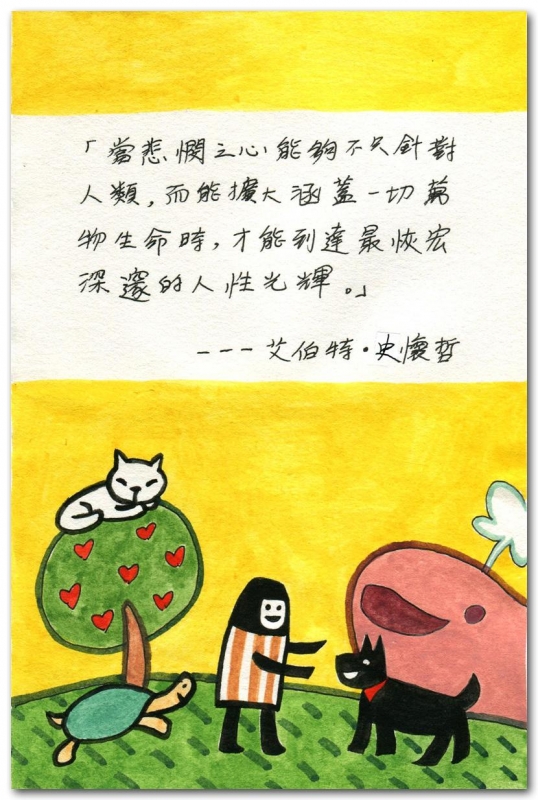 「當悲憫之心能夠不只針對
人類，而能擴大涵蓋一切萬
物生命時，才能到達最恢宏
深邃的人性光輝。」
---艾伯特·史懷哲